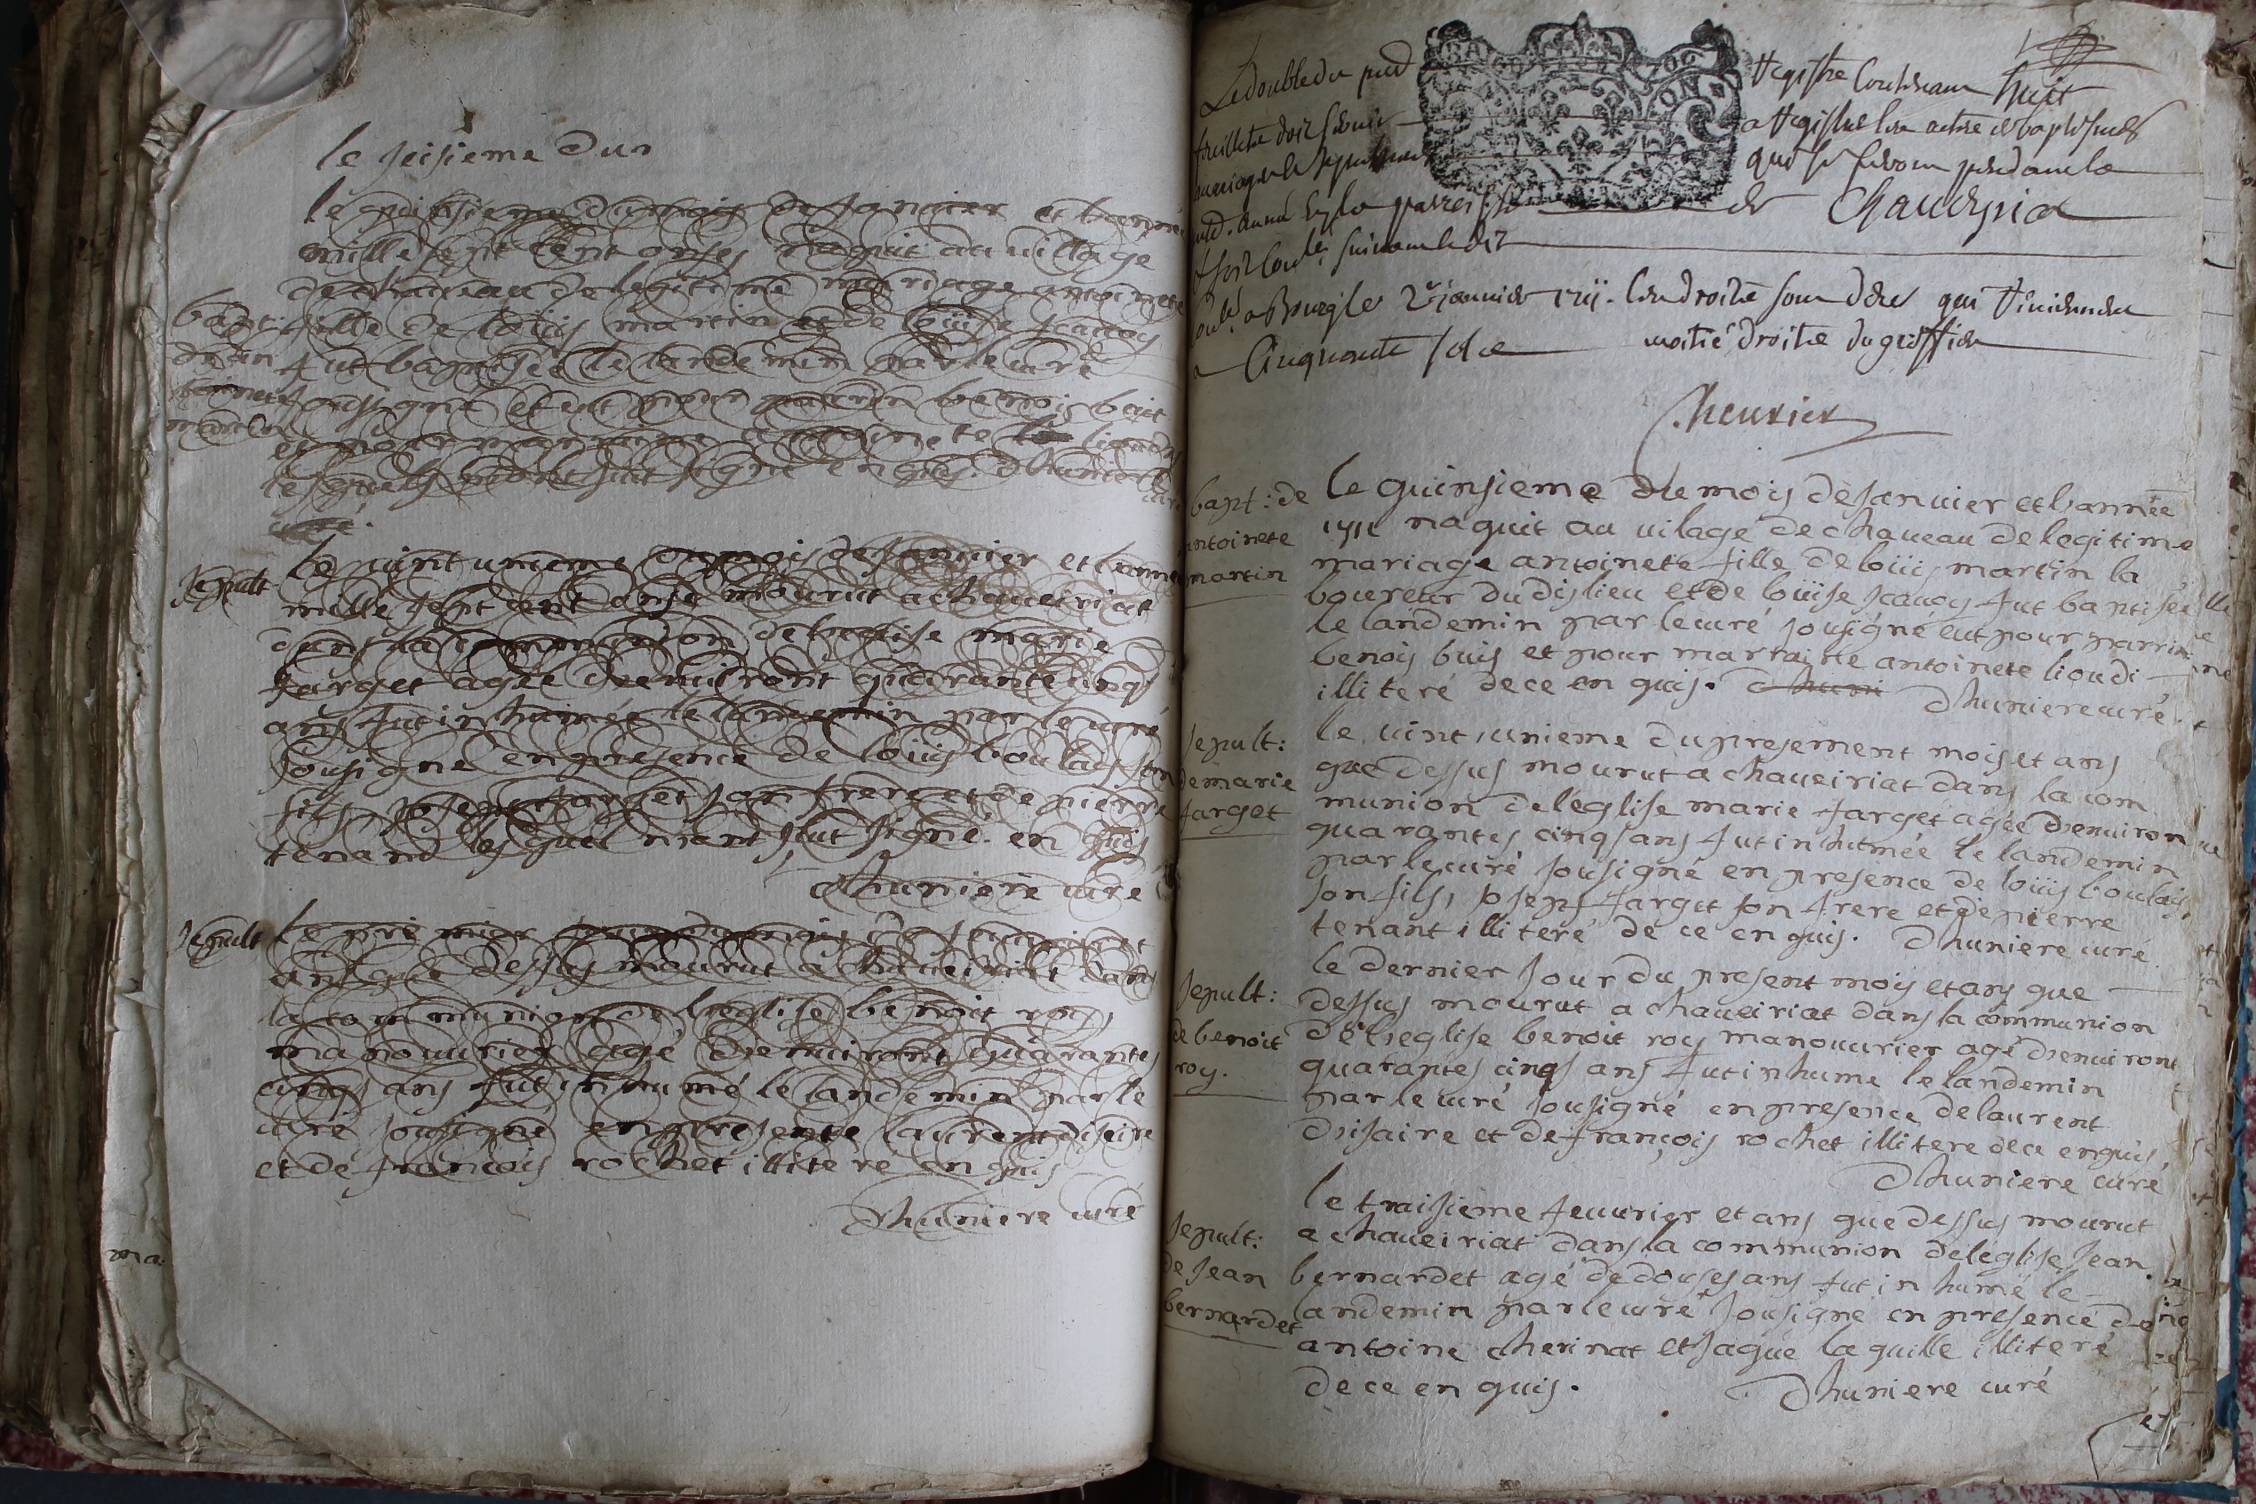 le seisieme du
le quinsieme du mois de Janvier et l'anné
mille sept cent onses naquit au village
de chaveau de legitime mariage antoinete
fille de loüis martin et de loüise Jcauoy
fut baptisée le landemin par le curé
sousigné et eut pour parrin benois buit
et pour marraine antoinete lioudi
lesquels n'ont sut signé en quis. Dhuniere
curé.
bapt:
de an
toinete
martin
le vint unieme du mois de Janvier et l'anné
mille sept cent onse mourut a chaveiriat
dans la communion de l'eglise marie
farget agée denviront quarante cinqs
ans fut inhumée le landemin par le curé
sousigné en presence de loüis boulais son
fils, Joseph farget son frere et de pierre
tenand lesquel n'ont sut signé. en quis
Dhuniere curé
sepult
le premier
ans que dessus mourut a chaveiriat dans
la communion de l'eglise benoit roy,
manouvrier agé denviront quarantes
cinqs ans fut inhumé le landemin par le
curé sousigné en presente laurent disaire
et de françois rochet illiteré en quis
Dhuniere curé
sepult
ma.
Le double du pnd Registre Contenant huit
feuillets doit servir a Registrer les actes de baptesmes
mariages et sepultures qui se feront pendant la
pnd. année En la parroisse de Chaveyria
suivant ledit
a Bourg le 2e janvier 1711. Les droits sont deus qui Reviendra
a Cinquante sols moitié droits du greffier
Cheurier
bapt: de
antoinete
martin
le quinsieme du mois de Janvier et l'année
1711 naquit au vilage de chaveau de legitime
mariage antoinete fille de loüis martin la
boureur du dislieu et de loüise Jcauoy fut baptisée
le landemin par le curé sousigné eut pour parrin
benois buis et pour marraine antoinete lioudi
illiteré de ce en quis. Dhuni Dhuniere curé
sepult:
de marie
farget
le vint, unieme du presement mois et ans
que dessus mourut a chaveiriat dans la com
munion de l'eglise marie farget agée denviron
quarantes cinqs ans fut inhumée le landemin
par le curé sousigné en presence de loüis boulais,
son fils, Joseps farget son frere et de pierre
tenant illiteré de ce en quis. Dhuniere curé
sepult:
de benoit
roy.
le dernier Jour du present mois et ans que
dessus mourut a chaveiriat dans la communion
de l'eglise benoit roy manouvrier agé denviront
quarantes cinqs ans fut inhume le landemin
par le curé sousigné en presence de laurent
disaire et de françois rochet illitere de ce en quis,
Dhuniere curé
sepult:
de Jean
bernardet
le traisieme feuvrier et ans que dessus mourut
a chaveiriat dans la communion de l'eglise Jean
bernardet agé de douses ans fut inhumé le
landemin par le curé sousigné en presence de
antoine cherinat et Jaque la quille illiteré
de ce en quis. Dhuniere curé